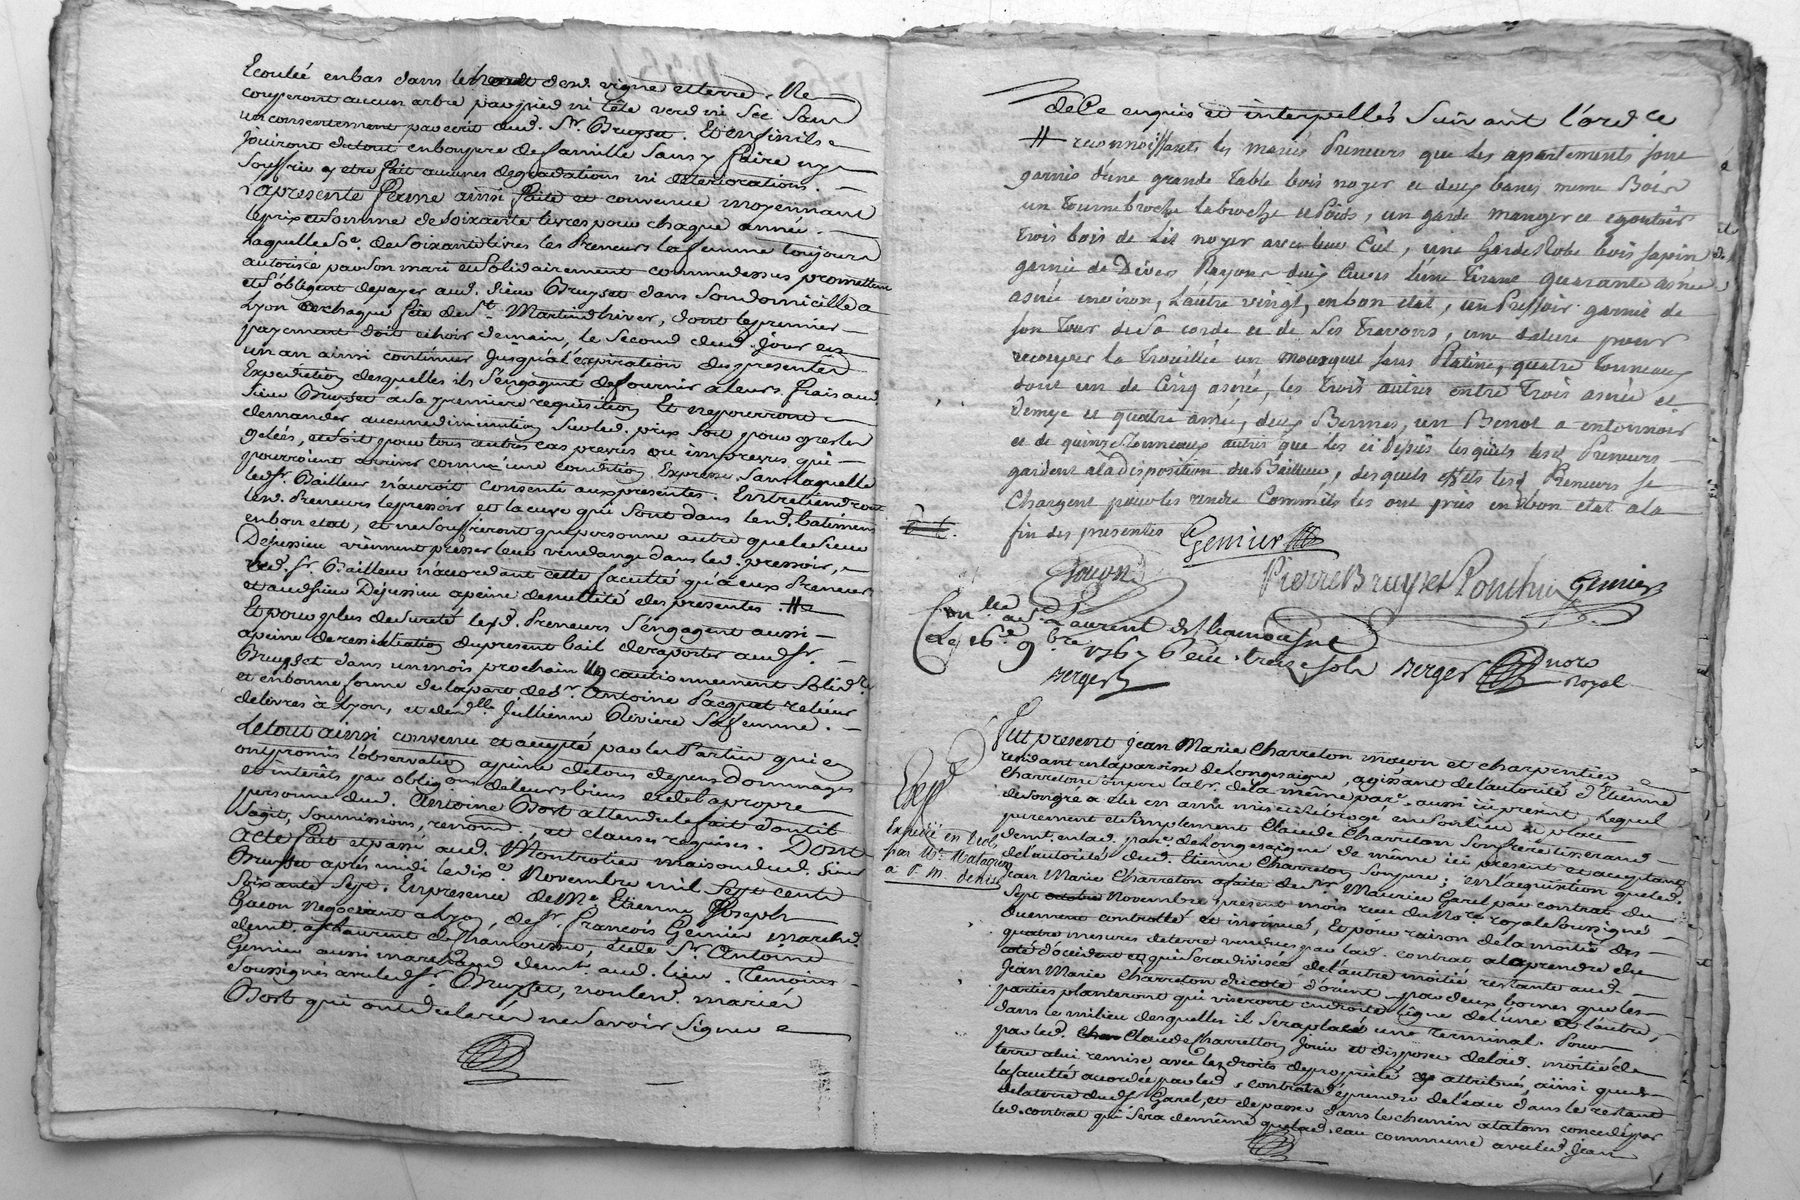 Ecoulée en bas dans le dend. vigne et terre. Ne
couperont aucun arbre par pied ni tête verd ni sec sans
un consentement par ecrit dud. Sr. Bruyset. Et enfin ils
jouiront du tout en bon pere de famille sans y faire ny
souffrir y etre fait aucunes degradations ni deteriorations.
La presente ferme ainsi faite et convenue moyennant
le prix et somme de soixante livres pour chaque année.
Laquelle so.e de soixante livres les Preneurs la femme toujours
autorisée par son mari et solidairement comme dessus promettent
et s'obligent de payer aud. sieur Bruyset dans son domicille a
Lyon a chaque fête de St. Martin d'hiver, dont le premier
payement doit echoir demain, le second dud. jour en
un an ainsi continuer jusqu'à l'expiration des presentes
Expedition desquelles ils s'engagent de fournir a leurs frais aud.
sieur Bruyset a sa premiere requisition Et ne pourront
demander aucune diminution sur led. prix soit pour gresles
gelées, et soit pour tous autres cas prevus ou imprevus qui
pourroient arriver comme une condition Expresse sans laquelle
led. Sr. Bailleur n'auroit consenti aux presentes. Entretiendront
lesd. Preneurs le pressoir et la cuve qui sont dans lesd. batimens
en bon etat, et ne souffriront que personne autre que le sieur
Dejussieu viennent presser leur vendange dans led. pressoir,
led. Sr. Bailleur n'acordant cette faculté qu'a eux Preneurs
et aud. sieur Dejussieu a peine de nullité des presentes. #
Et pour plus de sureté lesd. Preneurs s'engagent aussi
a peine de resiliation du present bail de raporter aud. Sr.
Bruyset dans un mois prochain un cautionnement solidre
et en bonne forme de la part de Sr. Antoine Pacquet relieur
de livres à Lyon, et de dlle Jullienne Riviere sa femme.
Le tout ainsi convenu et accepté par les Parties qui en
ont promis l'observation a peine de tous depens dommages
et interêts par obligons de leurs biens et de la propre
personne dud. Antoine Bost attendu le fait dont il
s'agit, soumissions, renonc., et clauses requises. Dont
Acte fait et passé aud. Montrotier maison dud. sieur
Bruyset après midi le dix.e Novembre mil sept cent
soixante sept. En presence de Me. Etienne Joseph
Gacon negociant a Lyon, de Sr. François Genier march.d
demt. a St Laurent de Chamousset, et de Sr. Antoine
Genier aussi marchand demt. aud. lieu. Temoins
soussignés avec led. Sr. Bruyset, non lesd. mariés
Bost qui ont declaré ne savoir signer
de ce enquis et interpellés suivant l'ord.ce
# reconnoissants les mariés Preneurs que les apartements sont
garnis d'une grande table bois noyer et deux bancs meme Bois
un Tournebroche la broche et Poids, un garde manger et egoutoir
trois bois de Lit noyer avec leur Ciel, une Garde Robe bois sapin
garnie de Divers Rayons deux Cuves l'une tirant quarante asnée
asnée environ, L'autre vingt, en bon etat, un Pressoir garnie de
son Tour de sa corde et de ses travons, une
recouper la trouillée un mousquet sans Platine, quatre Tonneaux
dont un de Cinq asnée, les trois autres entre Trois asnée et
demye et quatre asnée, deux Bennes, un Benot a entonnoir
et de quinze Tonneaux autres que les ci Dessus lesquels lesd. Preneurs
gardent a la Disposition du Bailleur, desquels effets lesd. Preneurs se
Chargent pour les rendre Comme ils les ont pris en bon etat a la
fin des presentes Genier
Gacon
Pierre Bruyset Ponthus Genier
Con.lé a St. Laurent de Chamousset
Le 16.e 9.bre 1767 treize sols Berger Noro royal
Berger
Exped
Expedié en
par Me.
a
Fut present Jean Marie Charreton maçon et charpentier
residant en la paroisse de Longessaigne, agissant de l'autorité d'Etienne
Charreton son pere labr. de la même par.e aussi ici present, lequel
de son gré a élu en ami misc et subrogé en son lieu et place
purement et simplement Claude Charreton son frere tisserand
demt. en lad. par.e de Longessaigne de meme ici present et acceptant
de l'autorité dud. Etienne Charreton son pere; en l'acquisition que led.
Jean Marie Charreton a faite de Sr. Maurice Garel par contrat du
sept Novembre present mois recu du No.re royal soussigné
duement controllé et insinué, Et pour raison de la moitié des
quatre mesures de terre vendues par lad. contrat a la prendre du
coté d'occident et qui sera divisée de l'autre moitié restante aud.
Jean Marie Charreton du coté d'orient par deux bornes que les
parties planteront qui viseront en droite ligne de l'une a l'autre,
dans le milieu desquelles il sera placé une terminal. Pour
par led. Claude Charreton jouir et disposer de lad. moitié de
terre a lui remise avec les droits de propriété y attribués, ainsi que de
la faculté accordée par led. contrat d'y prendre de l'eau dans le restant
de la terre dud. Sr. Garel, et de passer dans le chemin a talon concedé par
led. contrat qui sera de même que lad. eau commune avec led. Jean